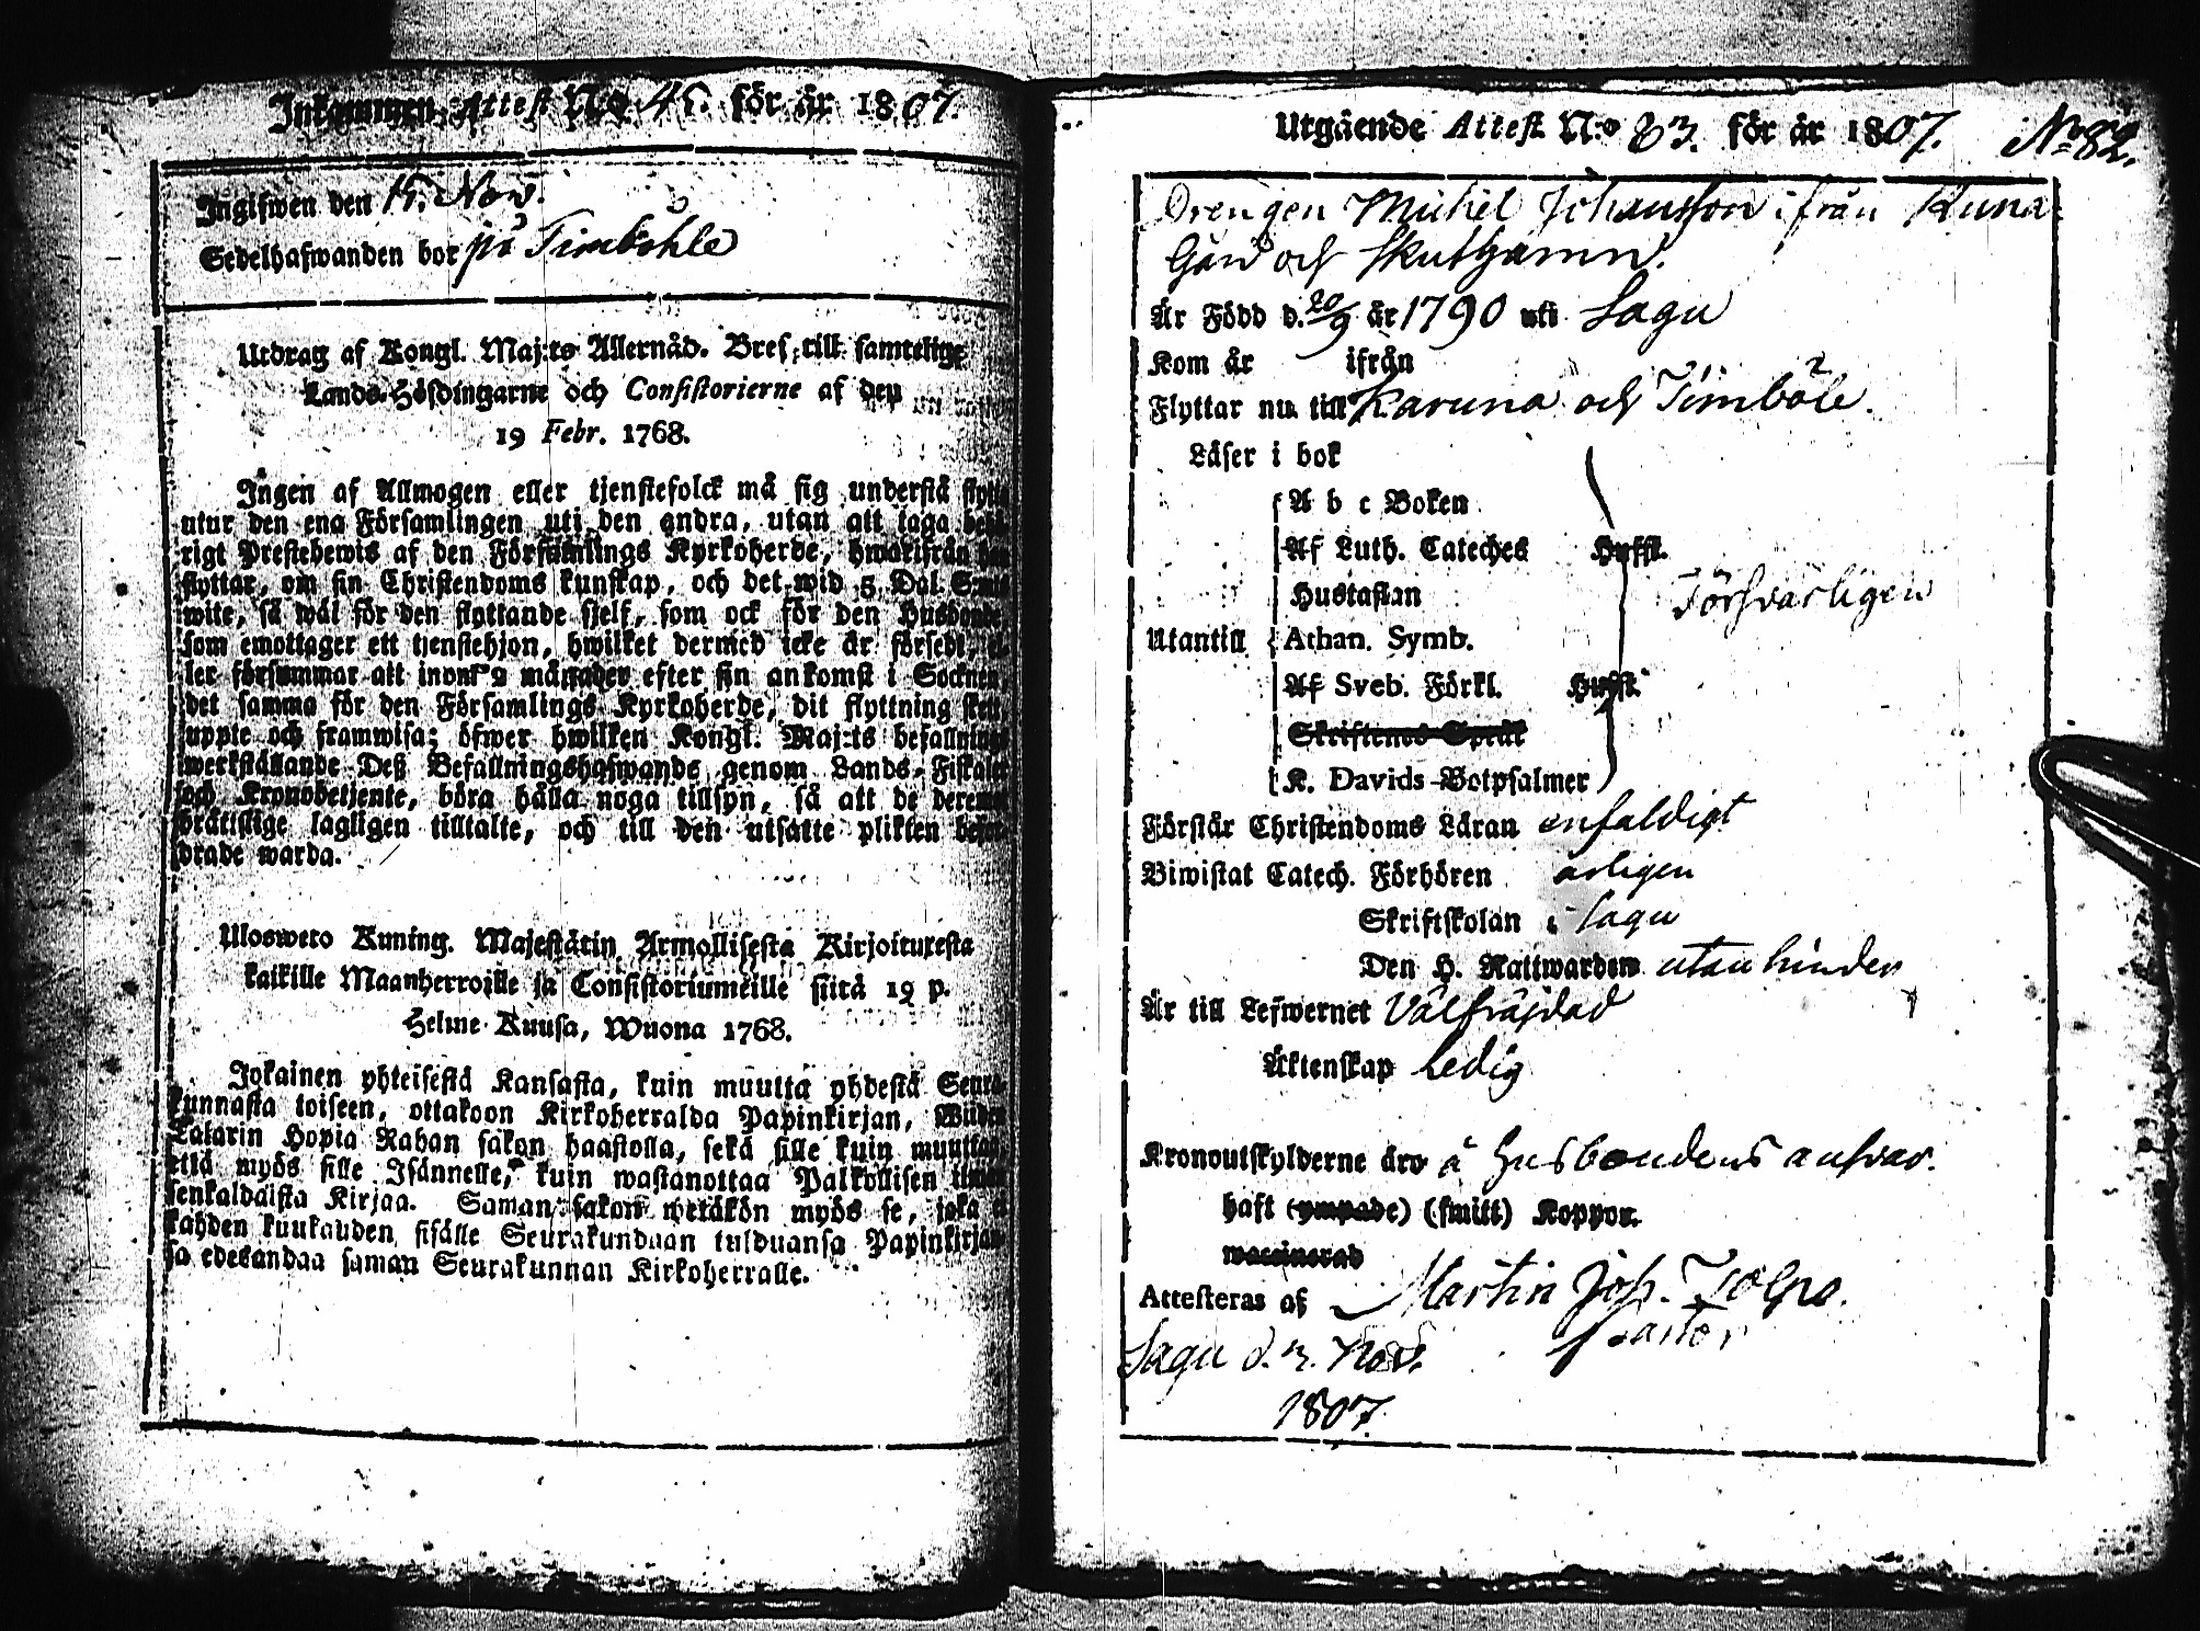 Inkommen Attest No 45. för år 1807.
Ingifwen den 15. Nov.
Sedelhafwanden bor på Timböhle
Utdrag af Kongl. Maj:ts Allernåd. Bref till samtelige
Lands-Höfdingarne och Consistorierne af den
19 Febr. 1768.
Ingen af Allmogen eller tjenstefolck må sig understå flytta
utur den ena Församlingen uti den andra, utan att taga behö-
rigt Prestebewis af den Församlings Kyrkoherde, hwarifrån han
flyttar, om sin Christendoms kunskap, och det wid 5 Dal. S:mts
wite, så wäl för den flyttande sjelf, som ock för den Husbonde
som emottager ett tjenstehjon, hwilket dermed icke är försedt, el-
ler försummar att inom 2 månader efter sin ankomst i Socknen,
det samma för den Församlings Kyrkoherde, dit flyttning skett,
uppte och framwisa; öfwer hwilken Kongl. Maj:ts befallnings
werkställande Deß Befallningshafwande genom Lands-Fiskaler
och Kronobetjente, böra hålla noga tillsyn, så att de deremot
brättslige lagligen tilltalte, och till den utsatte plikten befor-
drade warda.
Ulosweto Kuning. Majestätin Armollisesta Kirjoituxesta
kaikille Maanherroille ja Consistoriumeille siitä 19 p.
Helme Kuusa, Wuona 1768.
Jokainen yhteisestä Kansasta, kuin muutta yhdestä Seura-
kunnasta toiseen, ottakoon Kirkoherralda Papinkirjan, Wiiden
Talarin Hopia Rahan sakon haastolla, sekä sille kuin muuttaa
että myös sille Isännelle, kuin wastanottaa Palkollisen ilman
senkaldaista Kirjaa. Saman sakon wetäkön myös se, joka ei
kahden kuukauden sisälle Seurakundaan tulduansa Papinkirjan-
sa edesandaa saman Seurakunnan Kirkoherralle.
Utgående Attest N:o 83. för år 1807. No 82.
Drengen Michel Johansson ifrån Kuna
Gård och Skutham.
Är Född d. 20/9 år 1790 uti Sagu
Kom år ifrån
Flyttar nu till Karuna och Timböle.
Läser i bok
A b c Boken
Af Luth. Cateches Hufst.
Hustaflan Försvarligen
Utantill Athan. Symb.
Af Sveb. Förkl. Hufst.
Skriftenes Språk
K. Davids Botpsalmer
Förstår Christendoms Läran enfaldigt
Biwistat Catech. Förhören årligen
Skriftskolan i Sagu
Den H. Nattwarden utan hinder
Är till Lefwernet Välfräjdad
Äktenskap Ledig
Kronoutskylderne äro å Husbondens ansvar.
haft (ympade) (smitt) Koppor.
waccinerad
Attesteras af Martin Joh. Tolpo.
Pastor
Sagu d. 3. Nov.
1807.